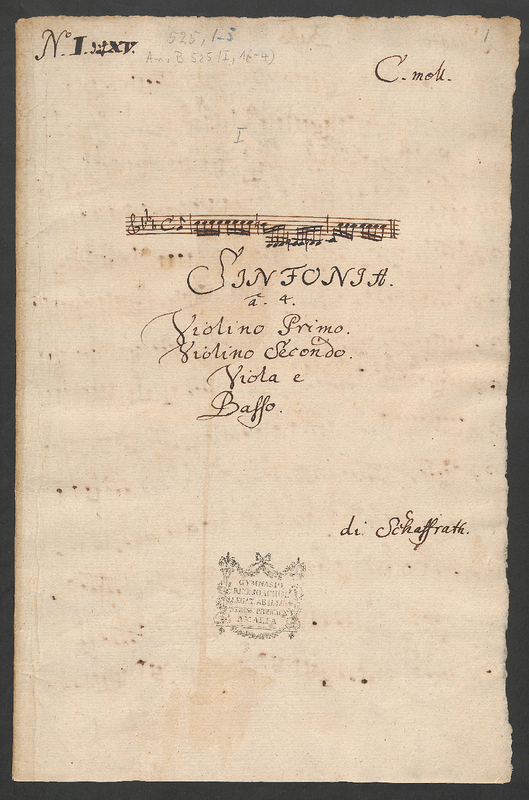 N.º I.
525, 1-5
1
Am. B 525 (I, 1(-4)
C. moll.
I
SINFONIA.
à. 4.
Violino Primo.
Violino Secondo.
Viola e
Basso.
di Schaffrath.
GYMNASII
AMALIA